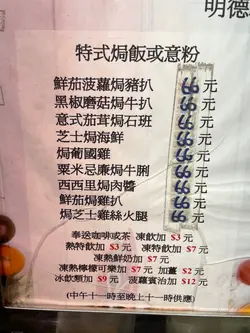 明德
特式焗飯或意粉
鮮茄菠蘿焗豬扒 66元
黑椒磨菇焗牛扒 66元
意式茄茸焗石班 66元
芝士焗海鮮 66元
焗葡國雞 66元
粟米忌廉焗牛脷 66元
西西里焗肉醬 66元
鮮茄焗雞扒 66元
焗芝士雞絲火腿 66元
奉送咖啡或茶 凍飲加 $3元
熱特飲加 $3元 凍特飲加 $7元
凍熱鮮奶加 $7元
凍熱檸檬可樂加 $7元 加薑 $2元
冰飲類加 $9元 菠蘿賓治加 $12元
(中午十一時至晚上十一時供應)